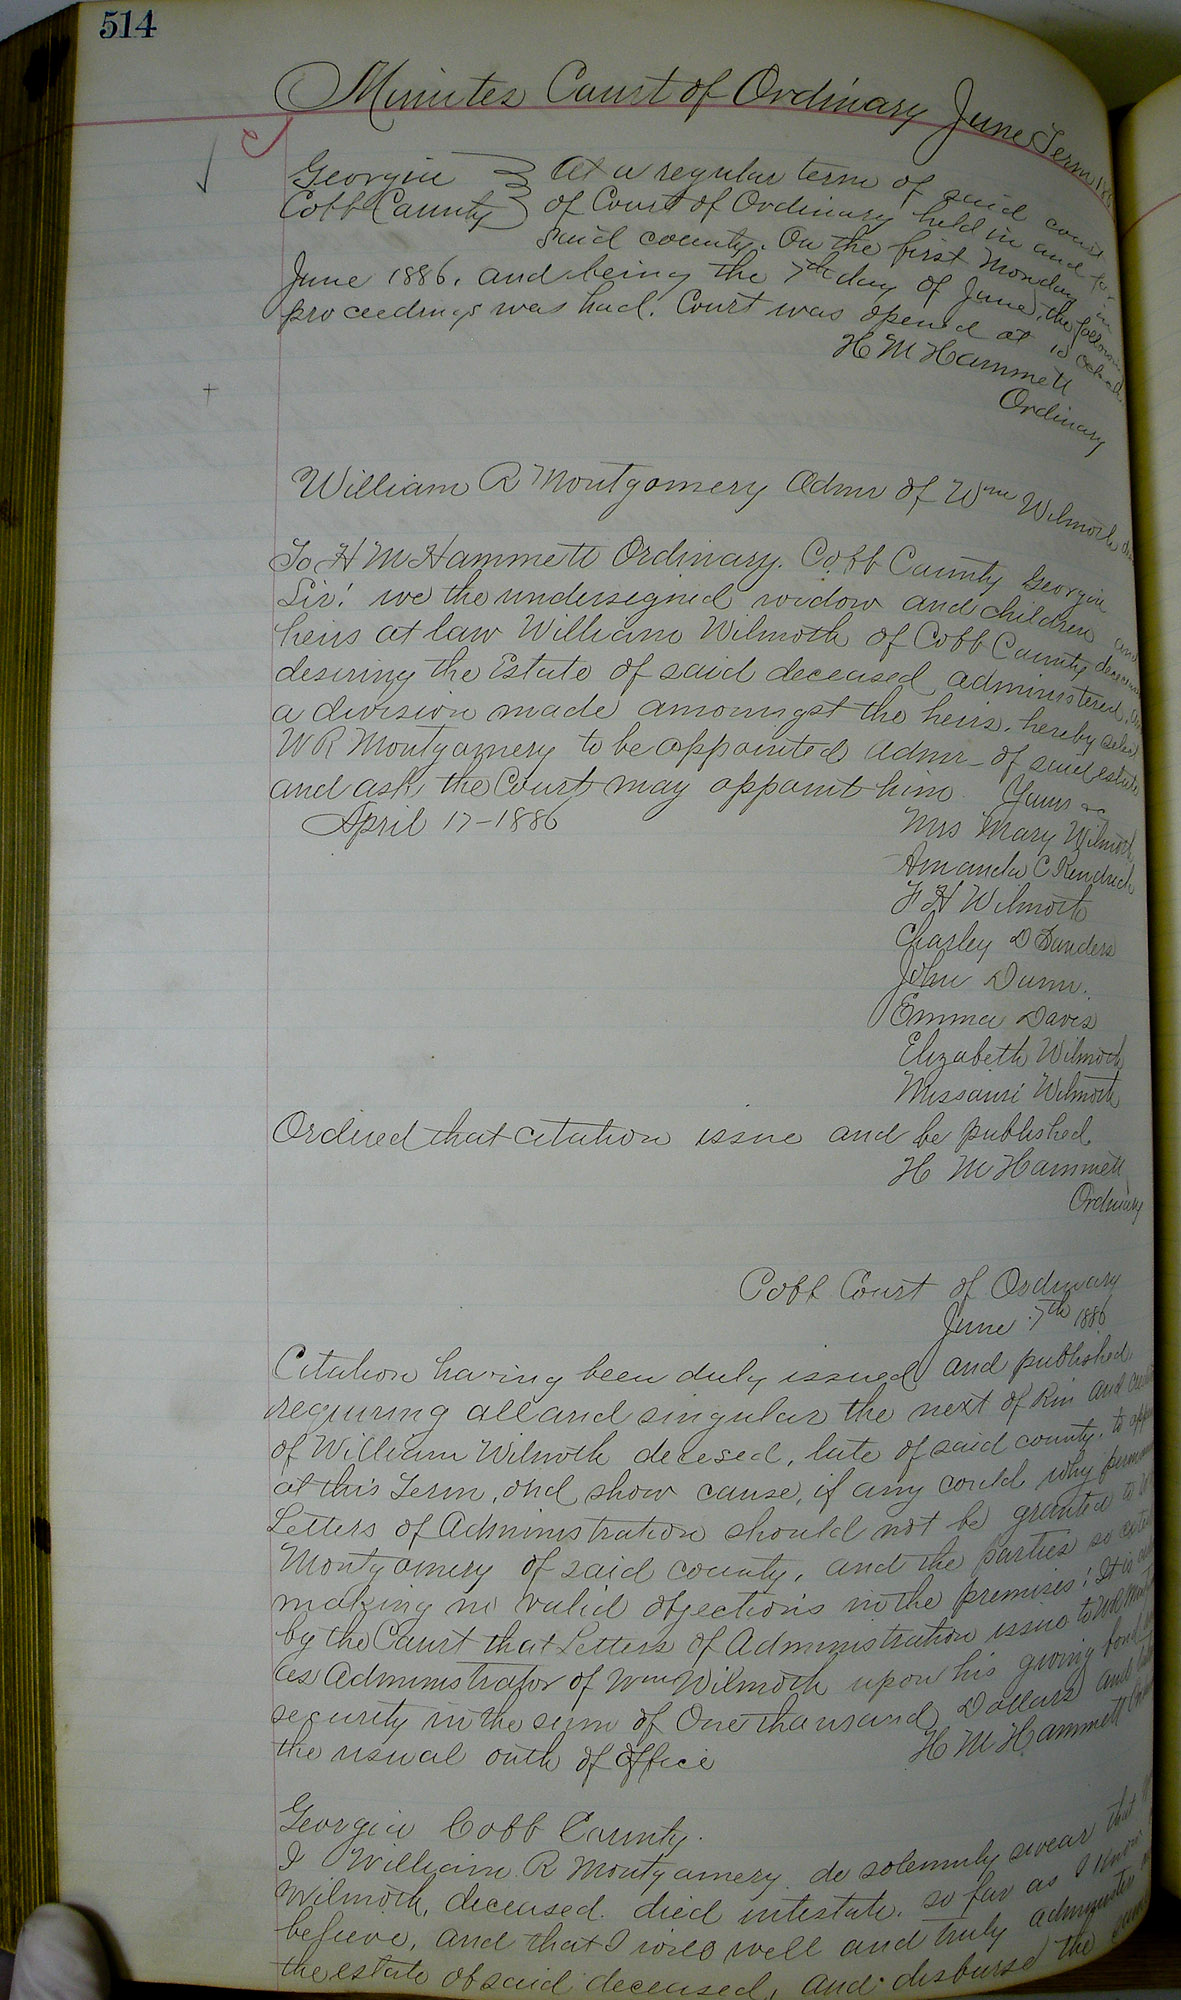 514
Minutes Court of Ordinary June Term
Georgia } At a regular term of said court
Cobb County } of Court of Ordinary held in and for
said county. On the first Monday in
June 1886. and being the 7th day of June, the following
proceedings was had. Court was opened at 10 oclock
H M Hammett
Ordinary
William R Montgomery Admr of Wm Wilmoth
To H M Hammett Ordinary. Cobb County Georgia
Sir! we the undersigned widow and children and
heirs at law William Wilmoth of Cobb County deceased
desiring the Estate of said deceased administered, and
a division made amomgst the heirs. hereby select
W R Montgomery to be appointed Admr - of said estate
and ask the Court may appoint him Yours &c
April 17-1886
Mrs Mary Wilmoth
Amanda C Kendrick
F H Wilmoth
Charley D Sanders
John Dunn.
Emma Davis
Elizabeth Wilmoth
Missouri Wilmoth
Ordered that citation issue and be published
H M Hammett
Ordinary
Cobb Court of Ordinary
June 7th 1886
Citation having been duly issued and published,
requiring all and singular the next of Kin and
of William Wilmoth decesed, late of said county, to
at this Term, and show cause, if any could why
Letters of Administration should not be granted to
Montgomery of said county, and the parties so
making no valid objections in the premises: It is
by the Court that Letters of Administration issue to WR
as Administrator of Wm Wilmoth upon his giving bond
security in the sum of One thousand Dollars and
the usual oath of office
H M Hammett
Georgia Cobb County.
I William R Montgomery. do solemnly swear that
Wilmoth, deceased. died intestate. so far as I know
believe, and that I will well and truly administer
the estate of said deceased, and disburse the